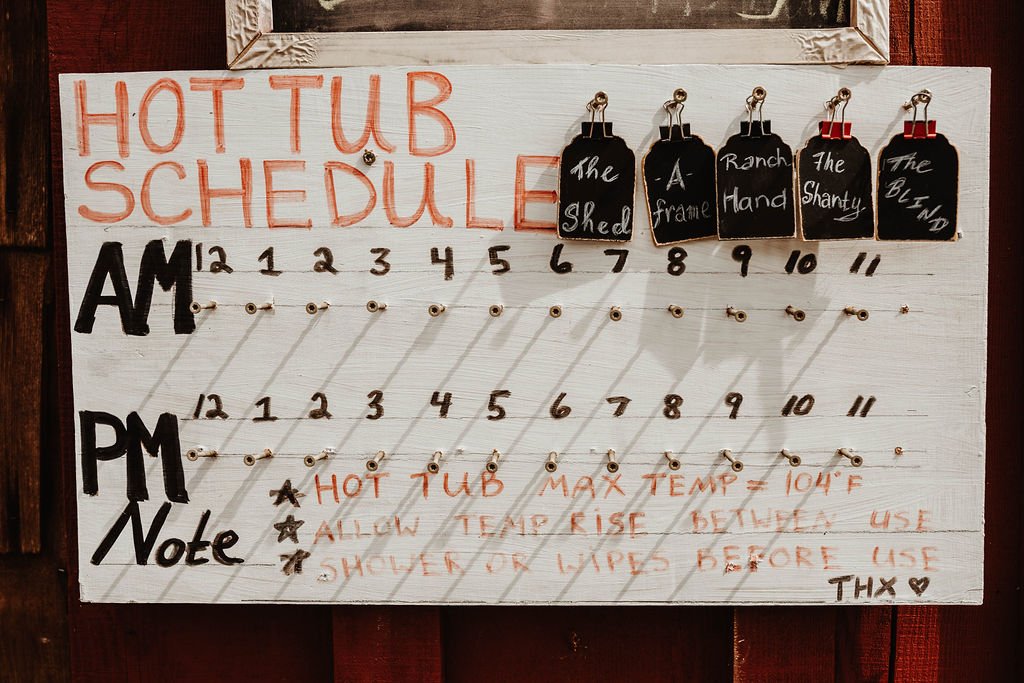 HOT TUB
SCHEDULE
The
Shed
-A-
frame
Ranch
Hand
The
Shanty
The
BLIND
AM 12 1 2 3 4 5 6 7 8 9 10 11
PM 12 1 2 3 4 5 6 7 8 9 10 11
Note ★ HOT TUB MAX TEMP = 104°F
★ ALLOW TEMP RISE BETWEEN USE
★ SHOWER OR WIPES BEFORE USE
THX ♡